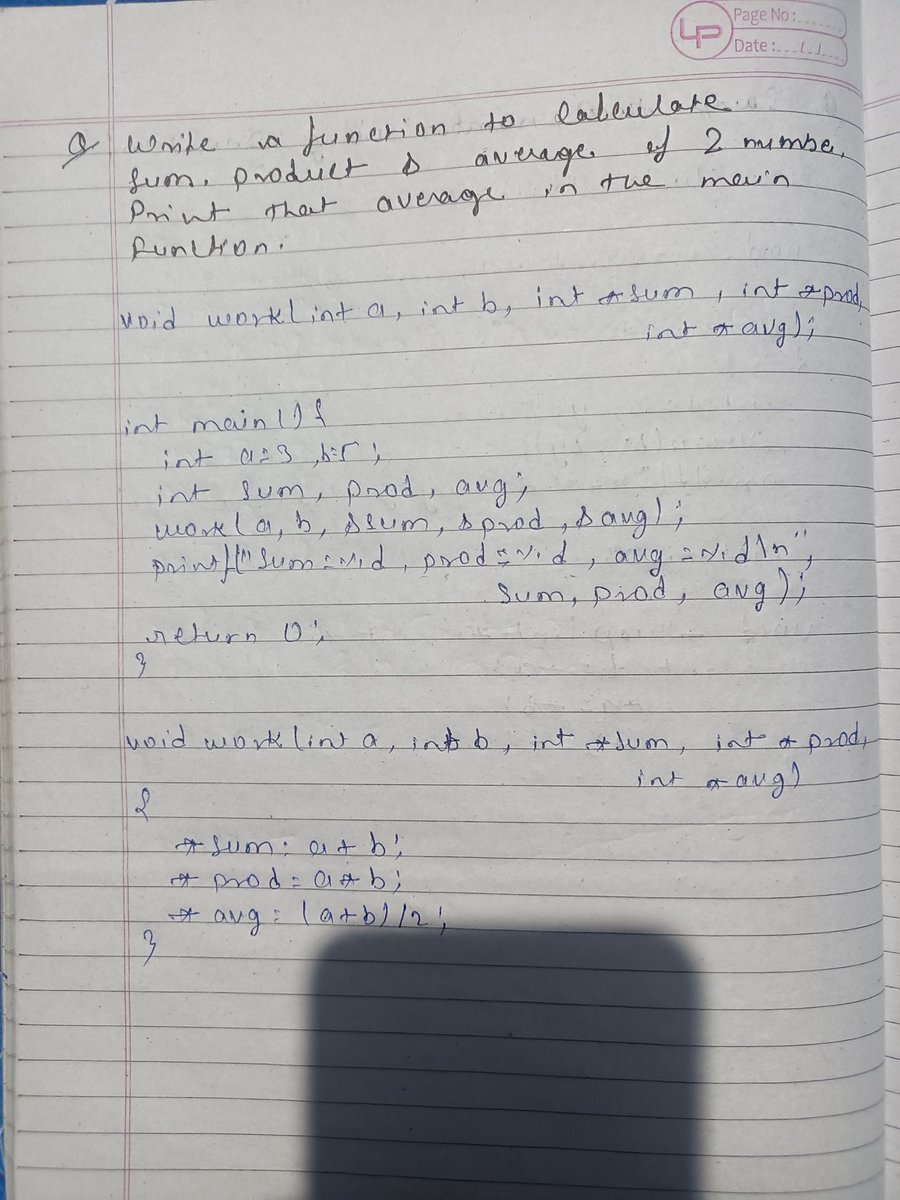 LP
Page No:
Date:
Q Write a function to calculate
sum, product & average of 2 number.
Print that average in the main
function.
void work(int a, int b, int *sum, int *prod,
int *avg);
int main() {
int a=3, b=5;
int sum, prod, avg;
work(a, b, &sum, &prod, &avg);
printf("sum=%d, prod=%d, avg=%d\n",
sum, prod, avg);
return 0;
}
void work(int a, int b, int *sum, int *prod,
int *avg)
{
*sum= a+b;
*prod= a*b;
*avg= (a+b)/2;
}